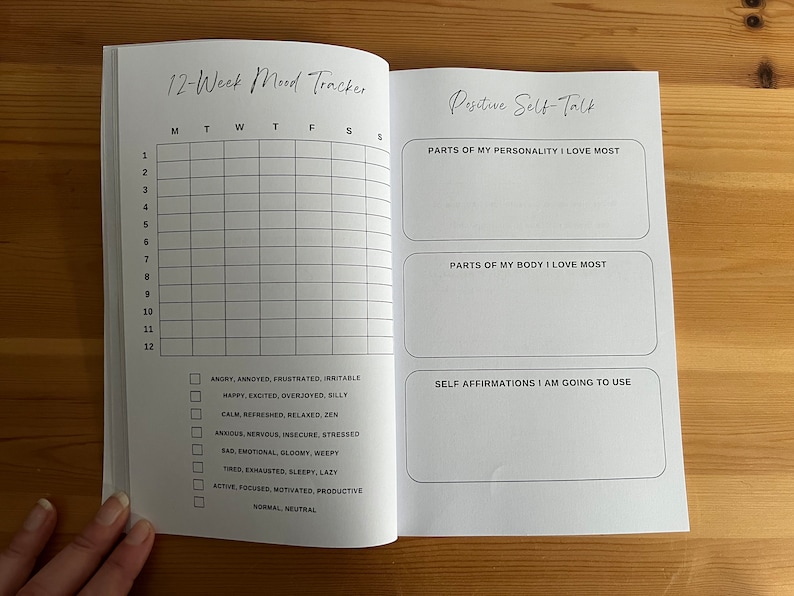 12-Week Mood Tracker
M T W T F S S
1
2
3
4
5
6
7
8
9
10
11
12
ANGRY, ANNOYED, FRUSTRATED, IRRITABLE
HAPPY, EXCITED, OVERJOYED, SILLY
CALM, REFRESHED, RELAXED, ZEN
ANXIOUS, NERVOUS, INSECURE, STRESSED
SAD, EMOTIONAL, GLOOMY, WEEPY
TIRED, EXHAUSTED, SLEEPY, LAZY
ACTIVE, FOCUSED, MOTIVATED, PRODUCTIVE
NORMAL, NEUTRAL
Positive Self-Talk
PARTS OF MY PERSONALITY I LOVE MOST
PARTS OF MY BODY I LOVE MOST
SELF AFFIRMATIONS I AM GOING TO USE